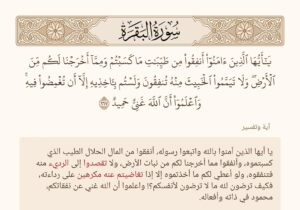 سُورَةُ البَقَرَةِ
يَٰٓأَيُّهَا ٱلَّذِينَ ءَامَنُوٓاْ أَنفِقُواْ مِن طَيِّبَٰتِ مَا كَسَبۡتُمۡ وَمِمَّآ أَخۡرَجۡنَا لَكُم مِّنَ
ٱلۡأَرۡضِۖ وَلَا تَيَمَّمُواْ ٱلۡخَبِيثَ مِنۡهُ تُنفِقُونَ وَلَسۡتُم بِـَٔاخِذِيهِ إِلَّآ أَن تُغۡمِضُواْ فِيهِۚ
وَٱعۡلَمُوٓاْ أَنَّ ٱللَّهَ غَنِيٌّ حَمِيدٌ ٢٦٧
آية وتفسير
يا أيها الذين آمنوا بالله واتبعوا رسوله، أنفقوا من المال الحلال الطيب الذي
كسبتموه، وأنفقوا مما أخرجنا لكم من نبات الأرض، ولا تقصدوا إلى الرديء منه
فتنفقونه، ولو أعطي لكم ما أخذتموه إلا إذا تغاضيتم عنه مكرهين على رداءته،
فكيف ترضون لله ما لا ترضون لأنفسكم؟! واعلموا أن الله غني عن نفقاتكم،
محمود في ذاته وأفعاله.